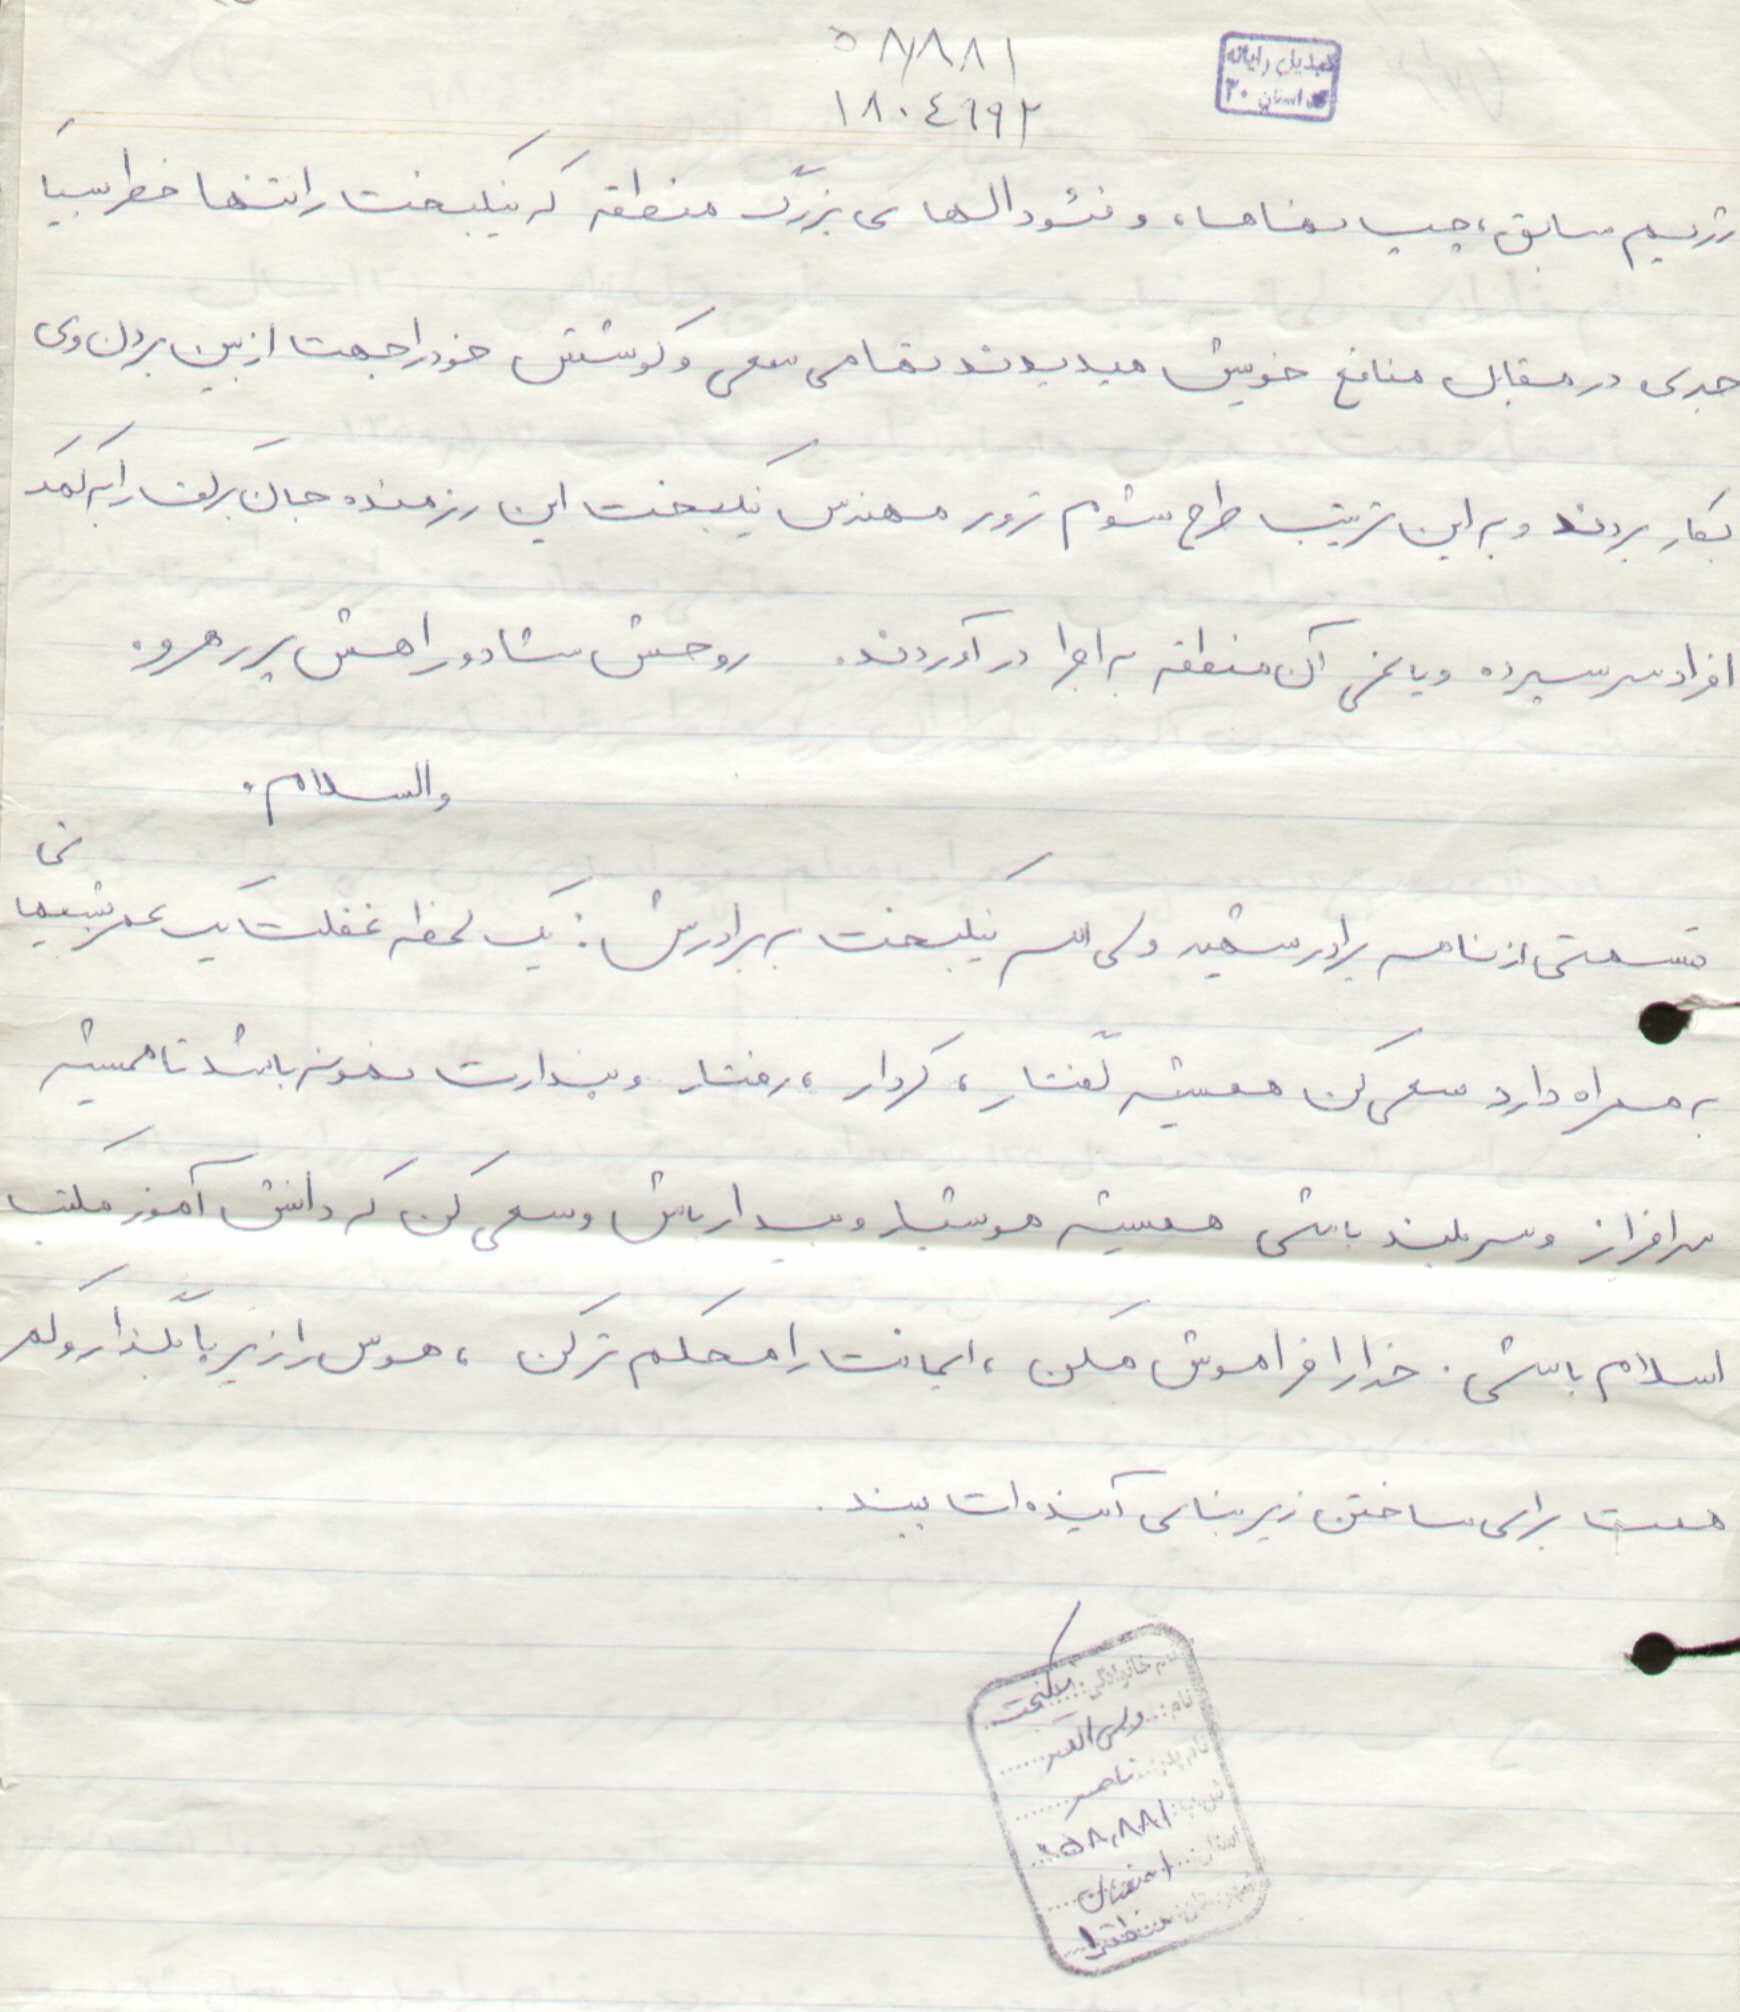 ۵۸/۸۸۱
۱۸۰۴۶۹۲
تبدیل رایانه
کد استان ۳۰
رژیم سابق، چپ نماها، و فئودالهای بزرگ منطقه که نیکبخت را تنها خطر بسیار
جدی در مقابل منافع خویش میدیدند تمامی سعی و کوشش خود را جهت از بین بردن وی
بکار بردند و به این ترتیب طرح شوم ترور مهندس نیکبخت این رزمنده جان برکف را به کمک
افراد سرسپرده و یاغی آن منطقه به اجرا در آوردند. روحش شاد و راهش پر رهرو.
والسلام.
قسمتی از نامه برادر شهید ولی الله نیکبخت به برادرش: یک لحظه غفلت یک عمر پشیمانی
به همراه دارد سعی کن همیشه گفتار، کردار، رفتار و پندارت نمونه باشد تا همیشه
سرافراز و سربلند باشی همیشه هوشیار و بیدار باش و سعی کن که دانش آموز مکتب
اسلام باشی. خدا را فراموش مکن، ایمانت را محکم تر کن، هوس را زیر پا بگذار و کمر
همت برای ساختن زیربنای آینده ات ببند.
نام خانوادگی: نیکبخت
نام: ولی الله
نام پدر: ناصر
۵۸/۸۸۱
استان: اصفهان
شهرستان: منطقه ۱